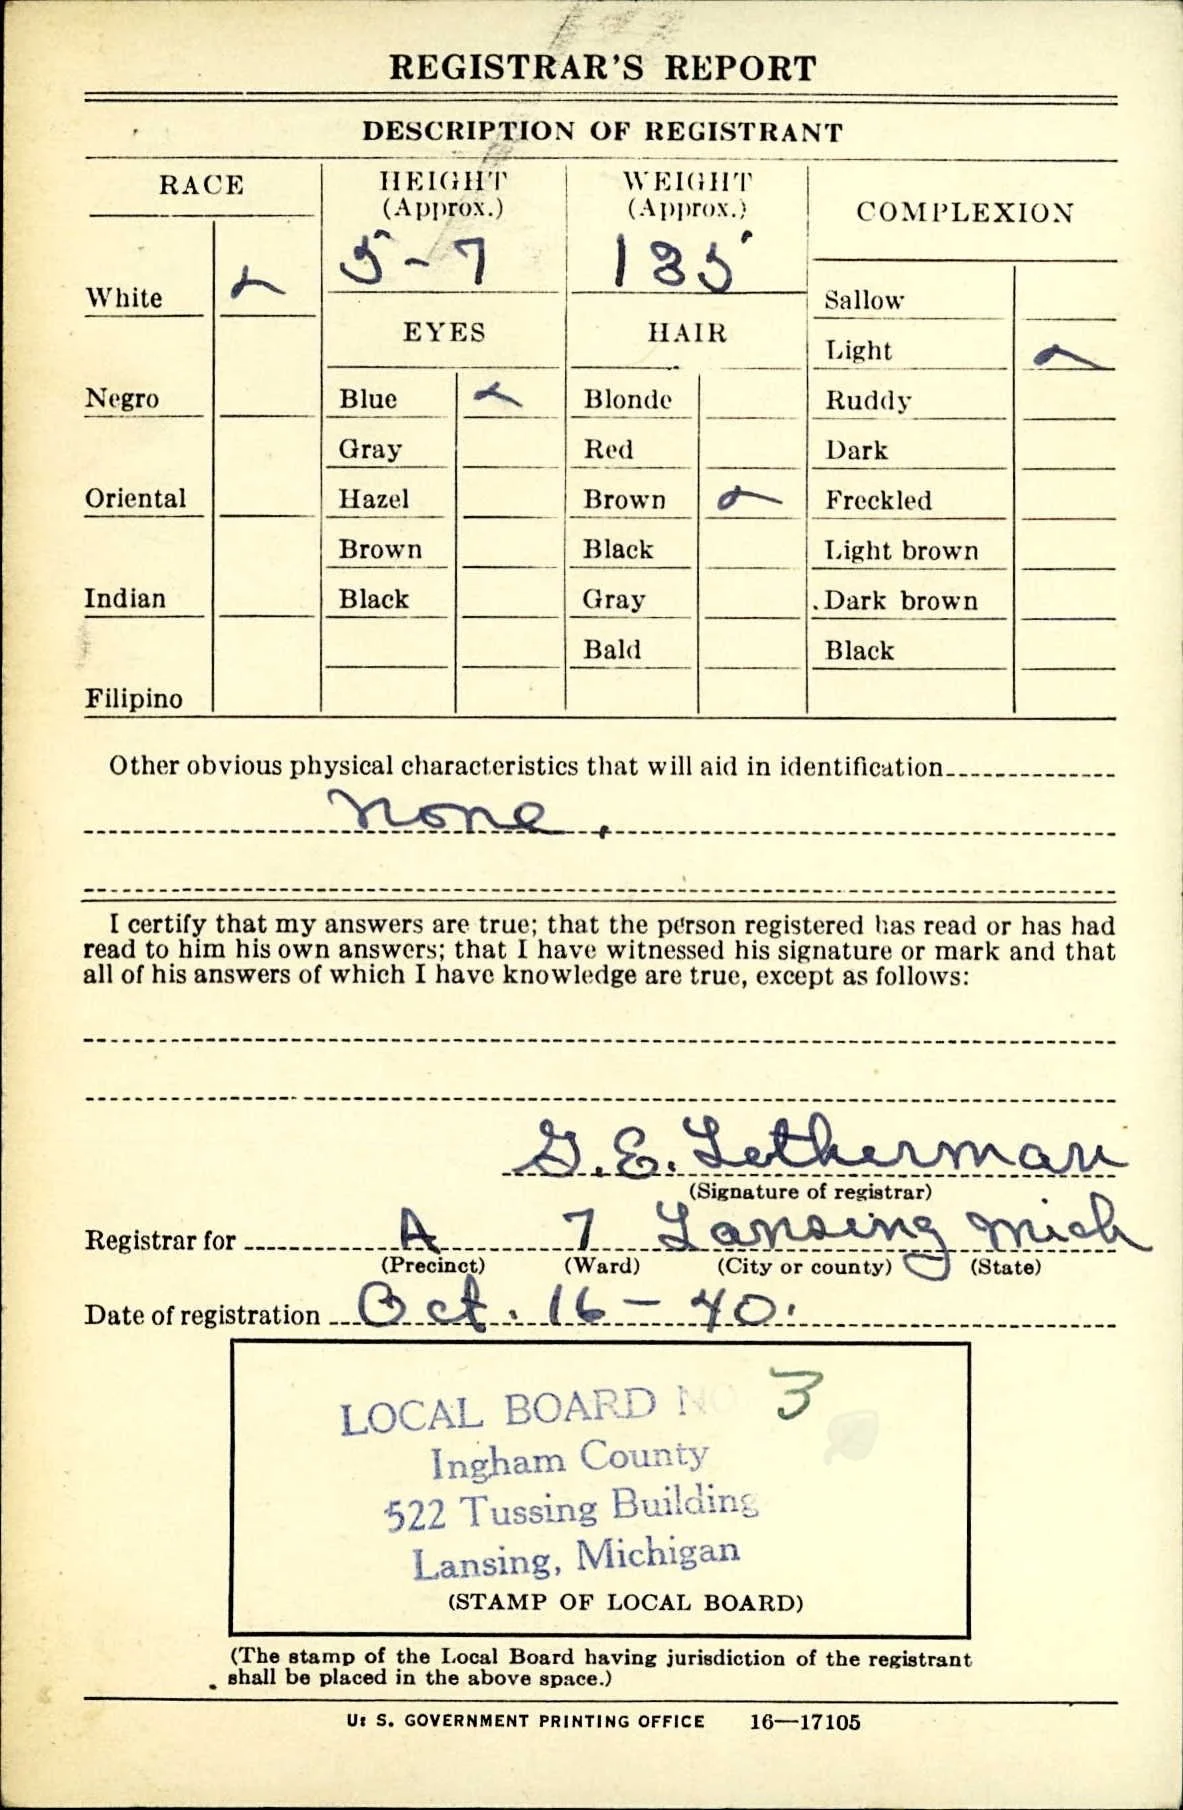 REGISTRAR'S REPORT
DESCRIPTION OF REGISTRANT
RACE
HEIGHT
(Approx.)
WEIGHT
(Approx.)
COMPLEXION
5-7
135
White
Sallow
EYES
HAIR
Light
Negro
Blue
Blonde
Ruddy
Gray
Red
Dark
Oriental
Hazel
Brown
Freckled
Brown
Black
Light brown
Indian
Black
Gray
Dark brown
Bald
Black
Filipino
Other obvious physical characteristics that will aid in identification
None.
I certify that my answers are true; that the person registered has read or has had
read to him his own answers; that I have witnessed his signature or mark and that
all of his answers of which I have knowledge are true, except as follows:
G. E. Letherman
(Signature of registrar)
Registrar for A 7 Lansing Mich
(Precinct) (Ward) (City or county) (State)
Date of registration Oct. 16 - 40.
LOCAL BOARD NO 3
Ingham County
522 Tussing Building
Lansing, Michigan
(STAMP OF LOCAL BOARD)
(The stamp of the Local Board having jurisdiction of the registrant
shall be placed in the above space.)
U. S. GOVERNMENT PRINTING OFFICE 16—17105